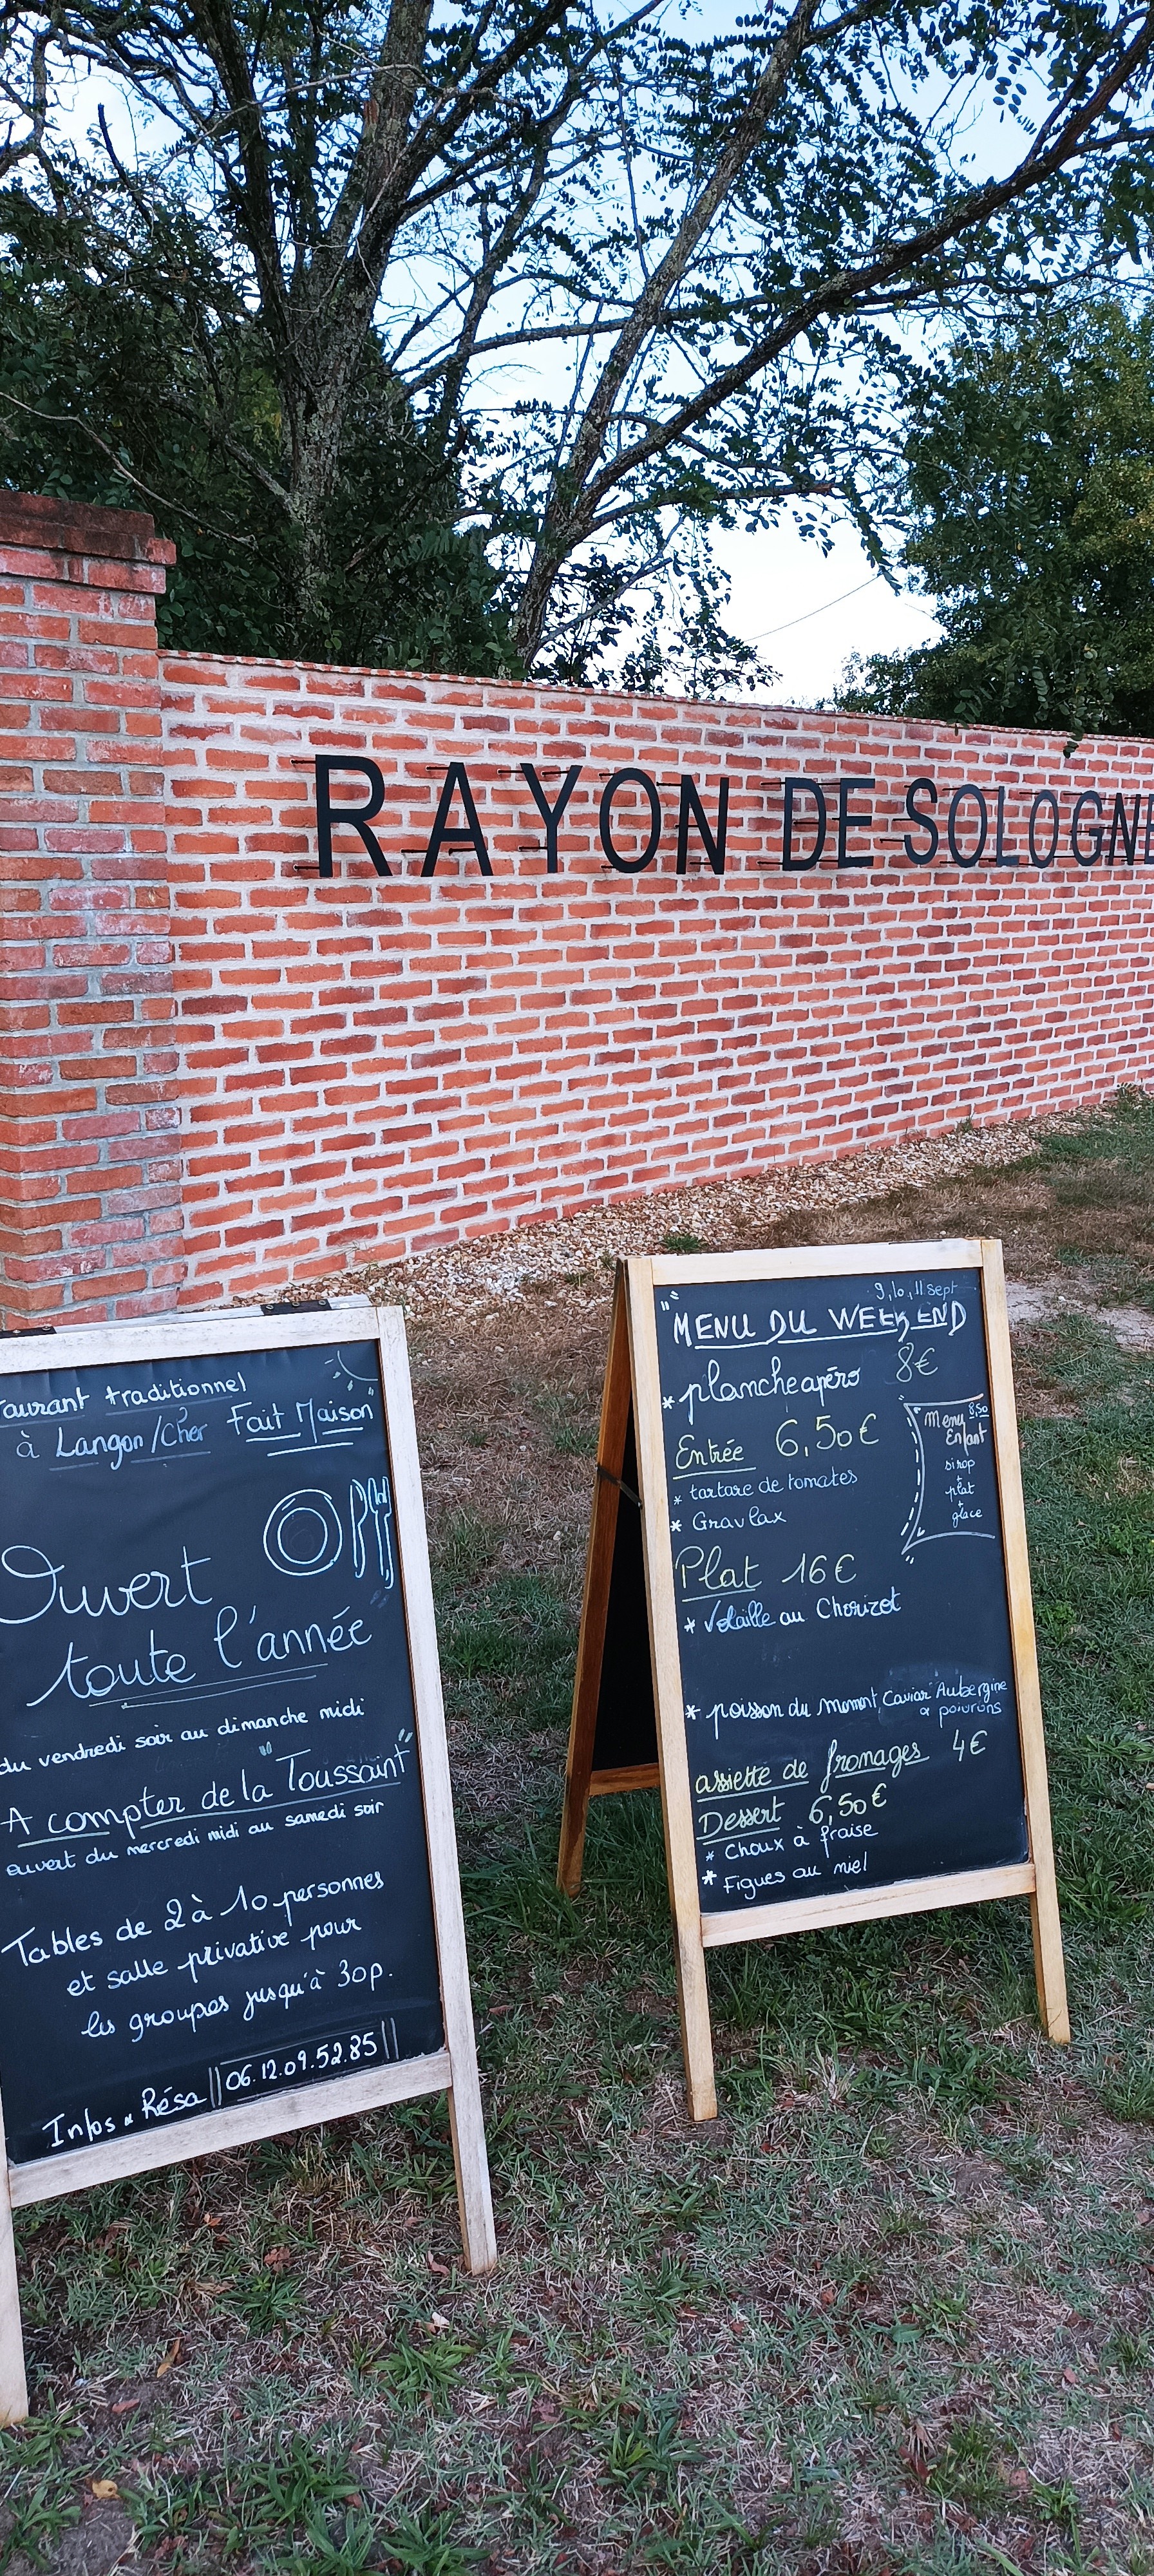 RAYON DE SOLOGNE
taurant traditionnel
à Langon/Cher Fait Maison
Ouvert
toute l'année
du vendredi soir au dimanche midi
A compter de la "Toussaint"
ouvert du mercredi midi au samedi soir
Tables de 2 à 10 personnes
et salle privative pour
les groupes jusqu'à 30p.
Infos & Résa 06.12.09.52.85
9,10,11 sept
"MENU DU WEEK END
* planche apéro 8€
Entrée 6,50€
* tartare de tomates
* Gravlax
Menu 8,50
Enfant
sirop
+
plat
+
glace
Plat 16€
* Volaille au Chorizot
* poisson du moment Caviar Aubergine
& poivrons
assiette de fromages 4€
Dessert 6,50€
* Choux à fraise
* Figues au miel